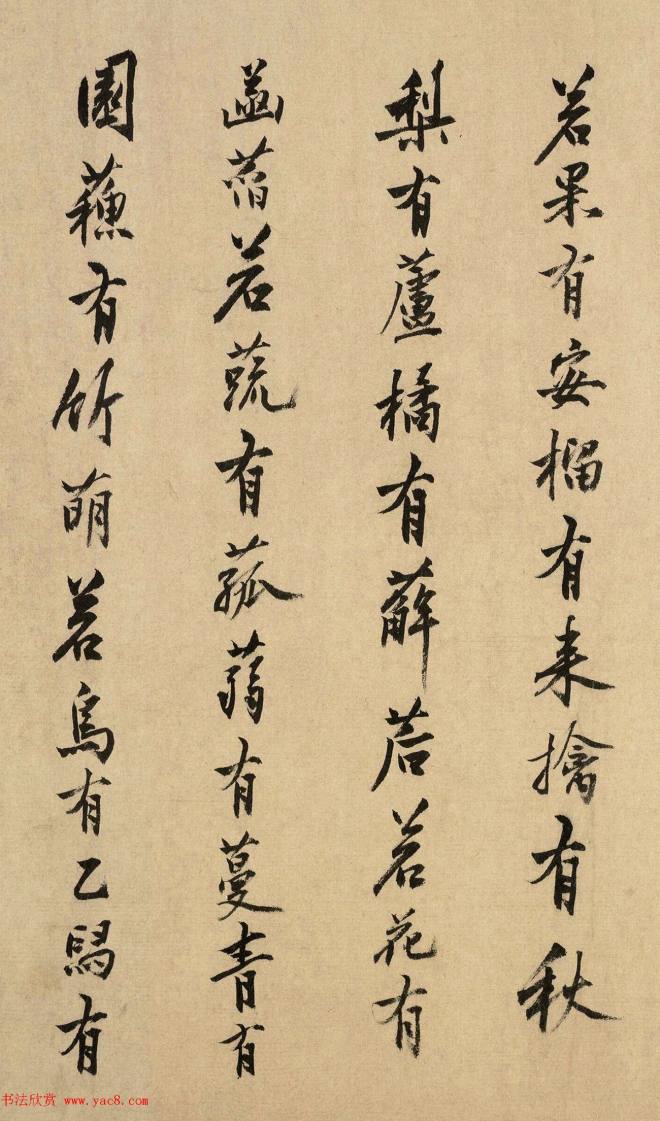 若果有安榴有来擒有秋
梨有蘆橘有薢茩若花有
菡萏若蔬有菰蒻有蔓青有
園蘓有竹萌若鳥有乙鴞有
书法欣赏 www.yac8.com